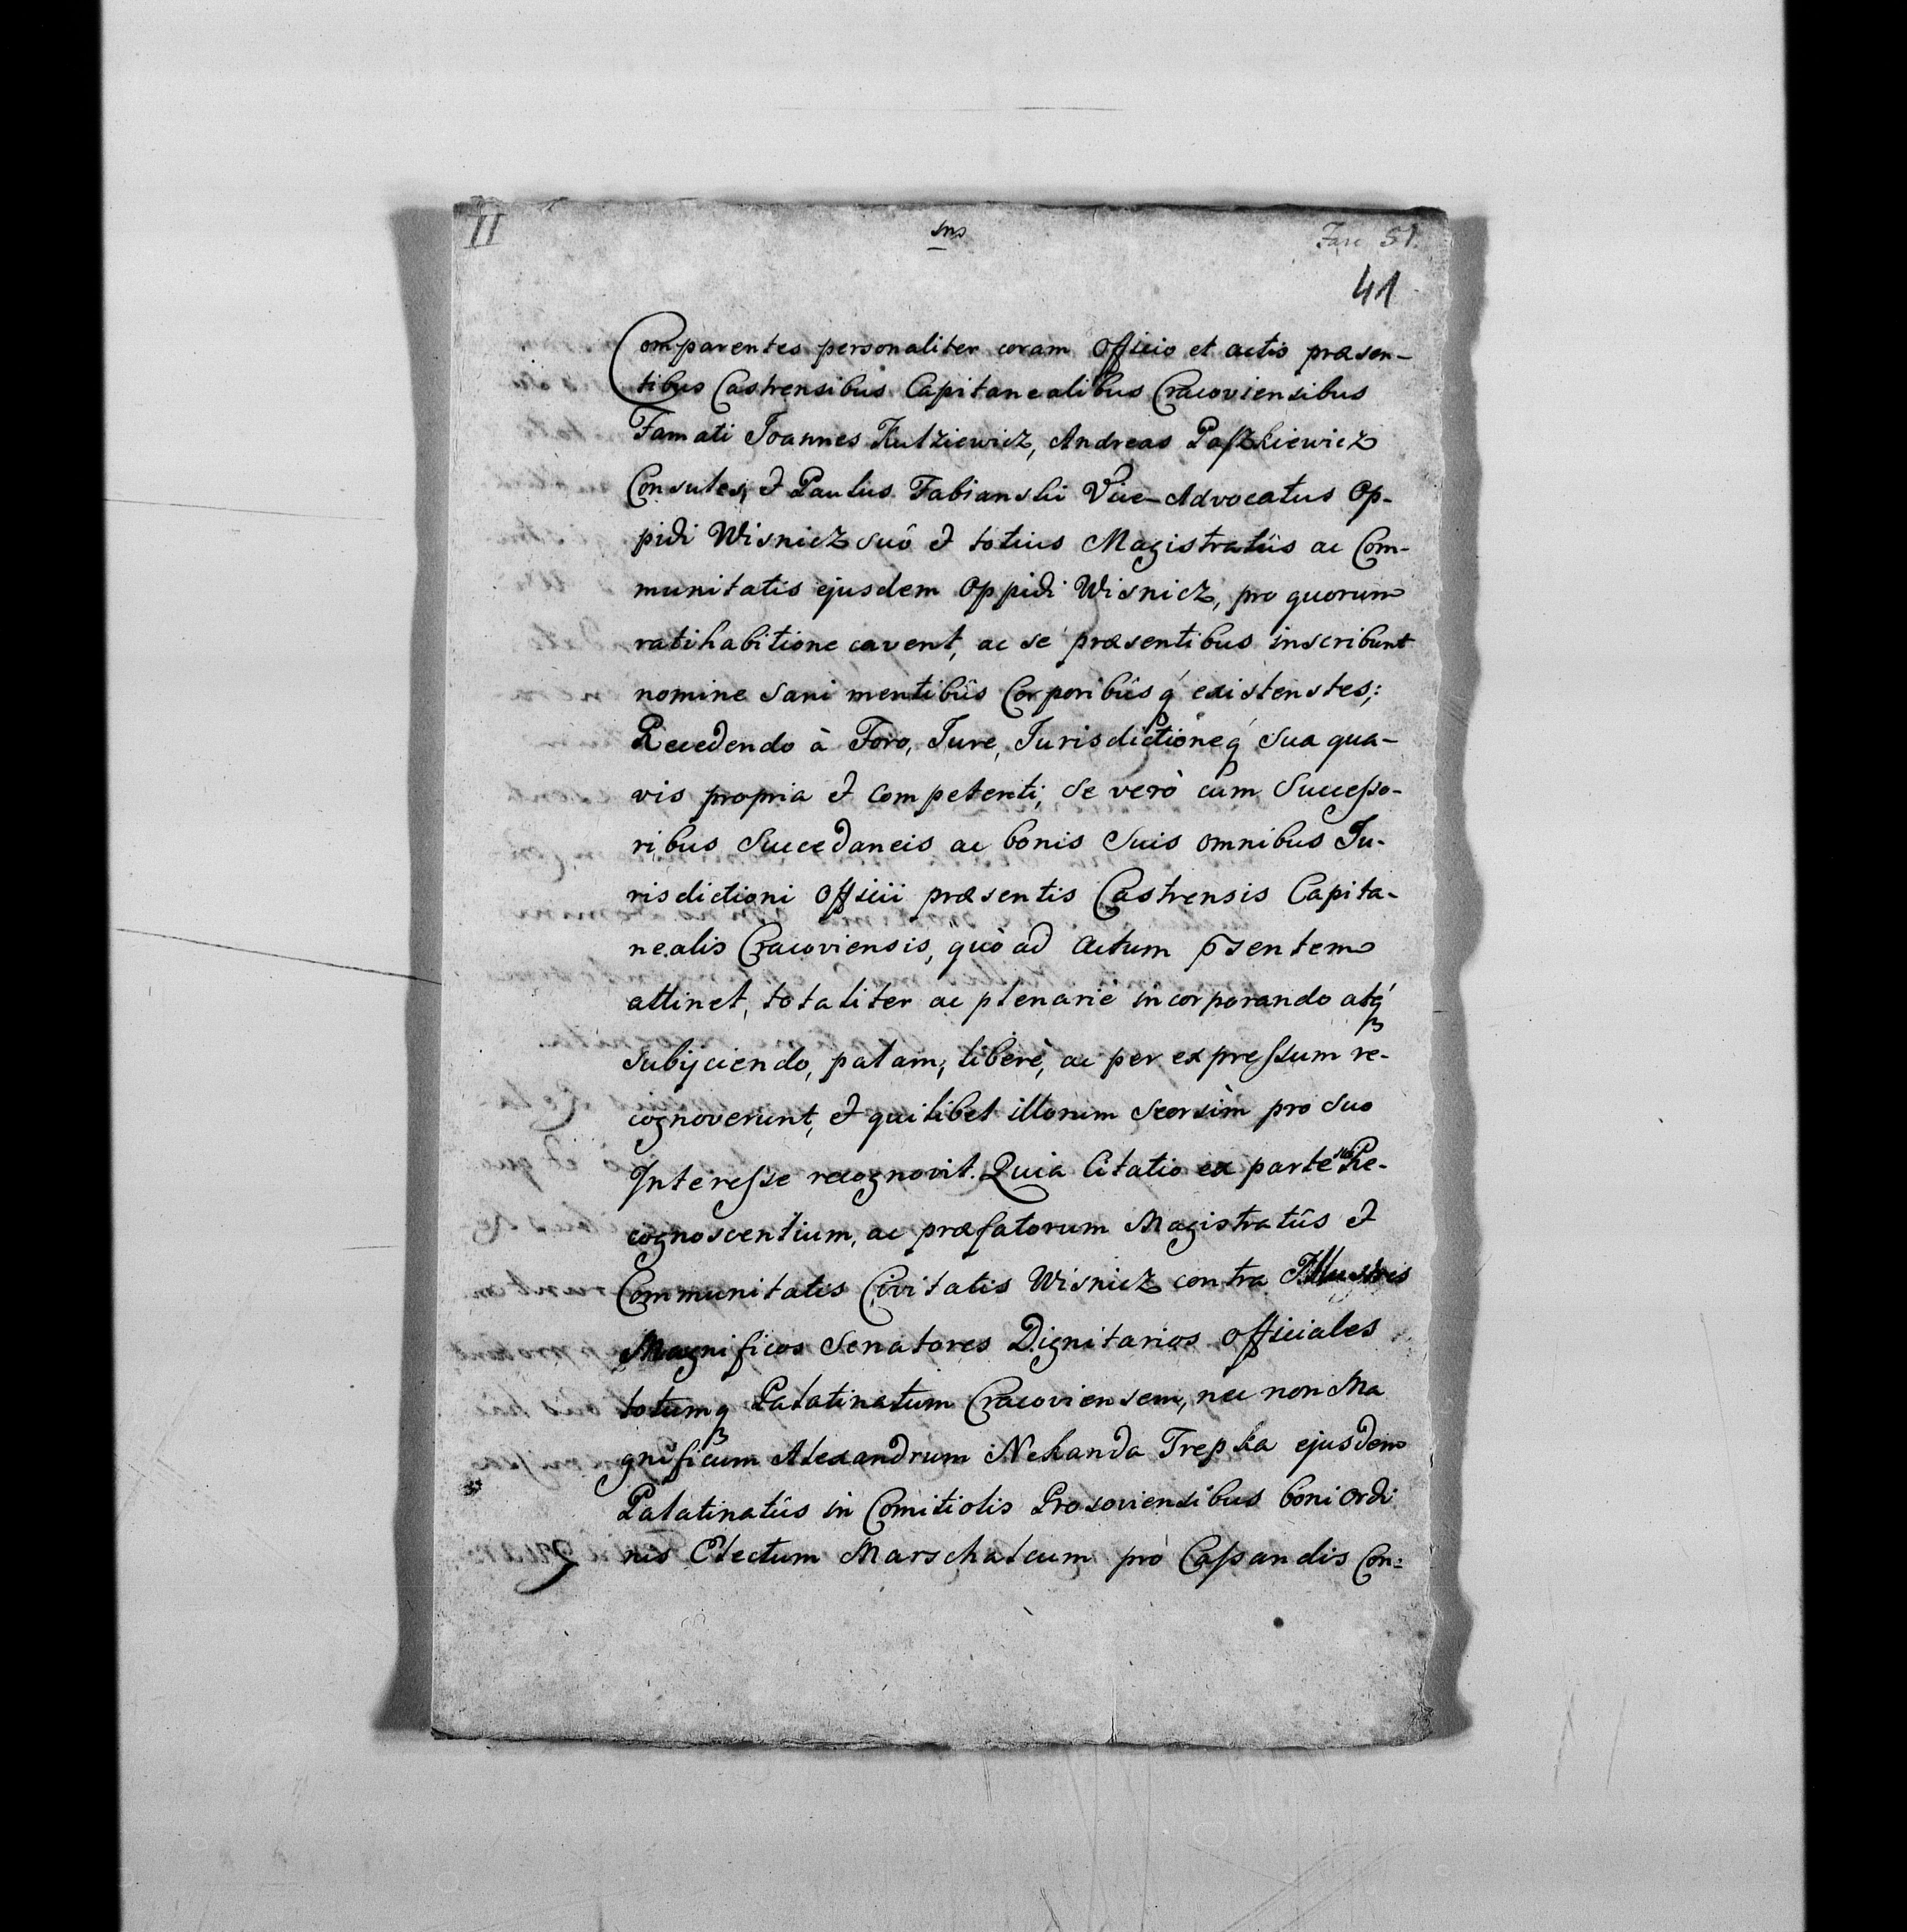 II
sns
Fasc 51.
41
Comparentes personaliter coram Officio et actis præsen-
tibus Castrensibus Capitanealibus Cracoviensibus
Famati Joannes Kutziewicz, Andreas Paszkiewicz
Consules, et Paulus Fabianski Vice-Advocatus Op-
pidi Wisnicz suô et totius Magistratûs ac Com-
munitatis ejusdem Oppidi Wisnicz, pro quorum
ratihabitione cavent, ac se præsentibus inscribunt
nomine sani mentibûs Corporibûsq́ existenstes;
Recedendo à Foro, Jure, Jurisdictioneq́ sua qua-
vis propria et competenti, se verò cum Successo-
ribus Succedaneis ac bonis Suis omnibus Ju-
risdictioni Officii præsentis Castrensis Capita-
nealis Cracoviensis, quò ad Actum p̄sentem
attinet, totaliter ac plenarie incorporando atq́
subijciendo, palam, liberè, ac per expressum re-
cognoverunt, et quilibet illorum seorsìm pro suo
Interesse recognovit. Quia Citatio ex parte Re-
cognoscentium, ac præfatorum Magistratûs et
Communitatis Civitatis Wisnicz contra Illustres
Magnificos Senatores Dignitarios Officiales
totumq Palatinatum Cracoviensem, nec non Ma
gnificum Alexandrum Nekanda Trepka ejusdem
Palatinatûs in Comitiolis Prosoviensibus boni ordi
nis Electum Marschalcum prò Cassandis Con=